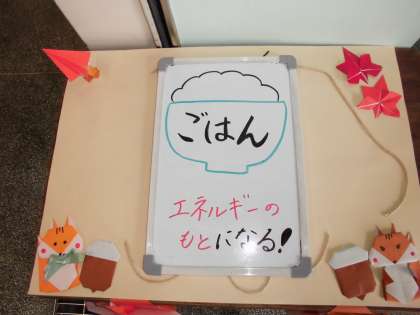 ごはん
エネルギーの
もとになる!